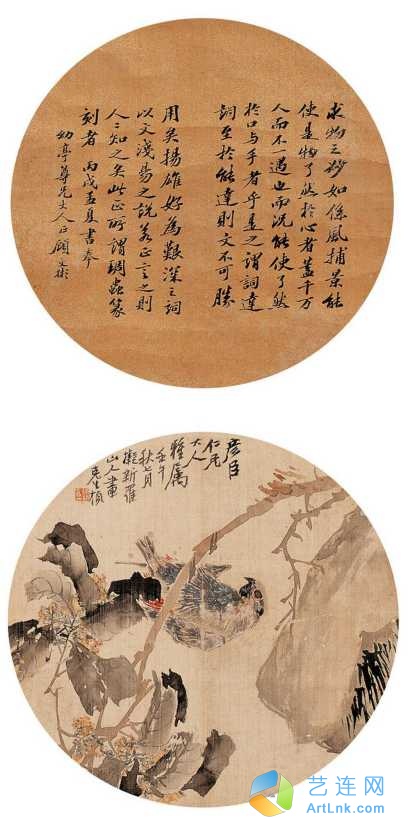 求物之妙如係風捕景能
使是物了然於心者蓋千万
人而不一遇也而况能使了然
於口与手者乎是之謂詞達
詞至於能達則文不可勝
用矣揚雄好為艱深之詞
以文淺易之說若正言之則
人〻知之矣此正所謂琱蟲篆
刻者 丙戌孟夏書奉
幼亭尊兄大人正 顧文彬
彦臣
仁兄
大人
雅属
壬午
秋七月
擬新羅
山人畫
艺连网
ArtLnk.com